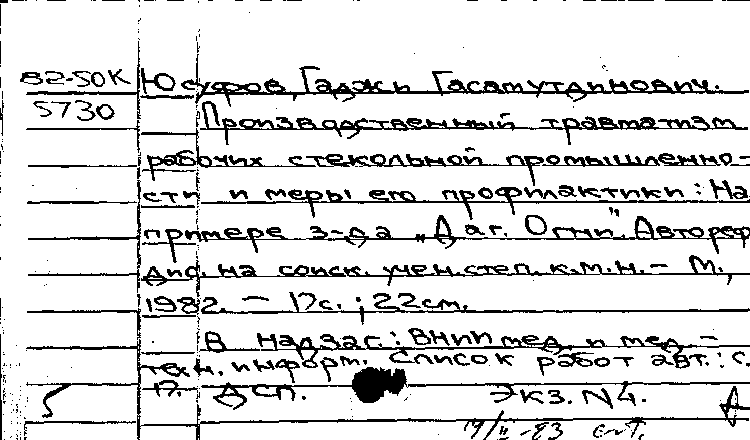 82-50К Юсуфов, Гаджи Гасамутдинович.
5730 Производственный травматизм
рабочих стекольной промышленно-
сти и меры его профилактики: На
примере з-да „Даг. Огни". Автореф.
дис. на соиск. учен. степ. к.м.н. - М.,
1982. - 17с.; 22см.
В надзаг.: ВНИИ мед. и мед.-
техн. информ. Список работ авт.: с.
17. ДСП. Экз. N4.
5